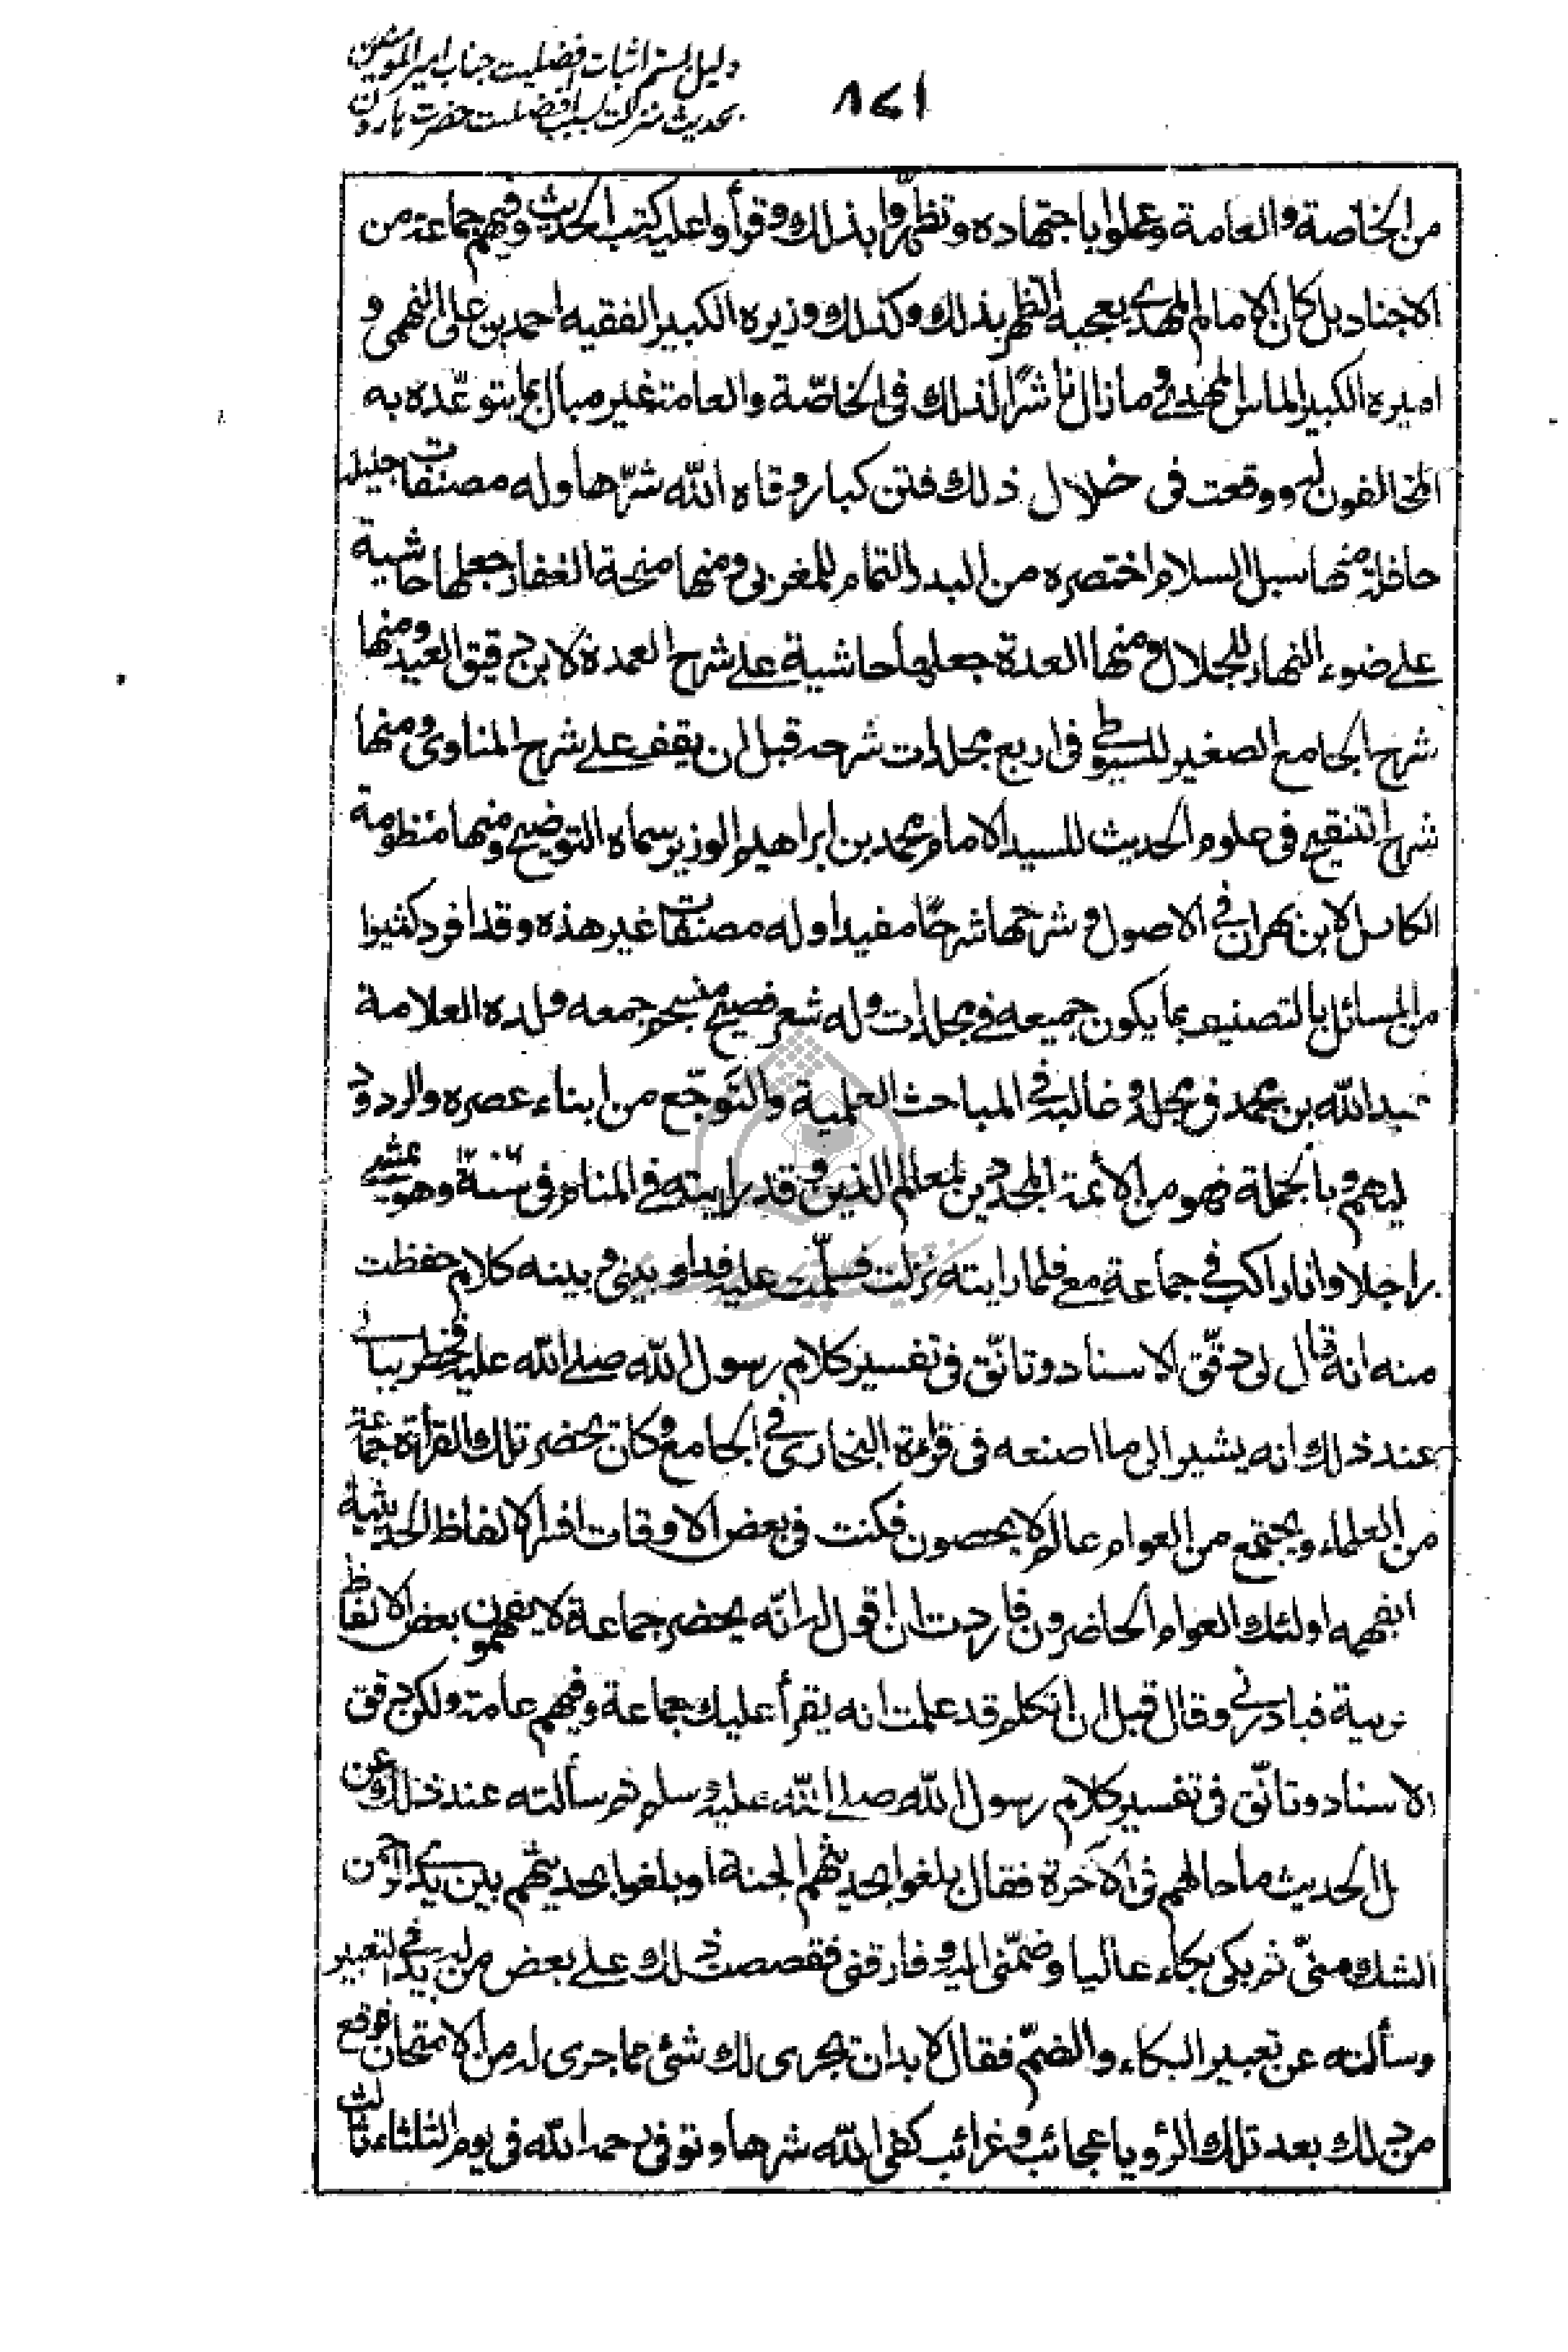 دليل بستم اثبات افضليت جناب امير المومنين
بحديث منزلت بسبب افضليت حضرت هارون
٨٤١
من الخاصة والعامة وعملوا باجتهاده وتظهروا بذلك وقرأوا عليه كتب الحديث وفيهم جماعة من
الاجناد بل كان الامام المهدى يعجبه التظهر بذلك وكذلك وزيره الكبير الفقيه احمد بن على النهمى و
اميره الكبير الماس المهدى وما زال ناشرًا لذلك فى الخاصّة والعامة غير مبال بما يتوعّده به
المخالفون له ووقعت فى خلال ذلك فتن كبار وقاه اللّه شرّها وله مصنفات جليلة
حافلة منها سبل السلام اختصره من البدر التمام للمغربى ومنها منحة الغفار جعلها حاشية
على ضوء النهار للجلال ومنها العدة جعلها حاشية على شرح العمدة لابن دقيق العيد ومنها
شرح الجامع الصغير للسيوطى فى اربع مجلدات شرحه قبل ان يقف على شرح المناوى ومنها
شرح التنقيح فى علوم الحديث للسيد الامام محمد بن ابراهيم الوزير سماه التوضيح ومنها منظومة
الكامل لابن بهران فى الاصول وشرحها شرحًا مفيدا وله مصنفات غير هذه وقد افرد كثيرا
من المسائل بالتصنيف بما يكون جميعه فى مجلدات وله شعر فصيح منسجم جمعه ولده العلامة
عبد اللّه بن محمد فى مجلد وغالبه فى المباحث العلمية والتوجّع من ابناء عصره والردود
ليهم وبالجملة فهو من الأئمة المجددين لمعالم الدين وقد رايته فى المنام فى سنة وهو يمشى
راجلا وانا راكب فى جماعة معى فلما رايته نزلت فسلّمت عليه فدار بينى وبينه كلام حفظت
منه انه قال لى دقّق الاسناد وتانّق فى تفسير كلام رسول اللّه صلى اللّه عليه فخطر ببالى
عند ذلك انه يشير الى ما اصنعه فى قراءة البخارى فى الجامع وكان يحضر تلك القراءة جماعة
من العلماء ويجتمع من العوام عالم لا يحصون فكنت فى بعض الاوقات افسر الالفاظ الحديثية
ا يفهمه اولئك العوام الحاضرون فاردت ان اقول له انّه يحضر جماعة لا يفهمون بعض الالفاظ
ربية فبادرنى وقال قبل ان اتكلم قد علمت انه يقرأ عليك جماعة وفيهم عامة ولكن دقق
الاسناد وتانّق فى تفسير كلام رسول اللّه صلى اللّه عليه وسلم ثم سألته عند ذلك عن
ل الحديث ما حالهم فى الآخرة فقال بلغوا بحديثهم الجنة او بلغوا بحديثهم بين يدى الرحمن
الشك منّى ثم بكى بكاء عاليا وضمّنى اليه وفارقنى فقصصت ذلك على بعض من له يد فى التعبير
وسألته عن تعبير البكاء والضمّ فقال لا بد ان يجرى لك شئ مما جرى له من الامتحان فوقع
من ذلك بعد تلك الرؤيا عجائب وغرائب كفى اللّه شرها وتوفى رحمه اللّه فى يوم الثلثاء ثالث